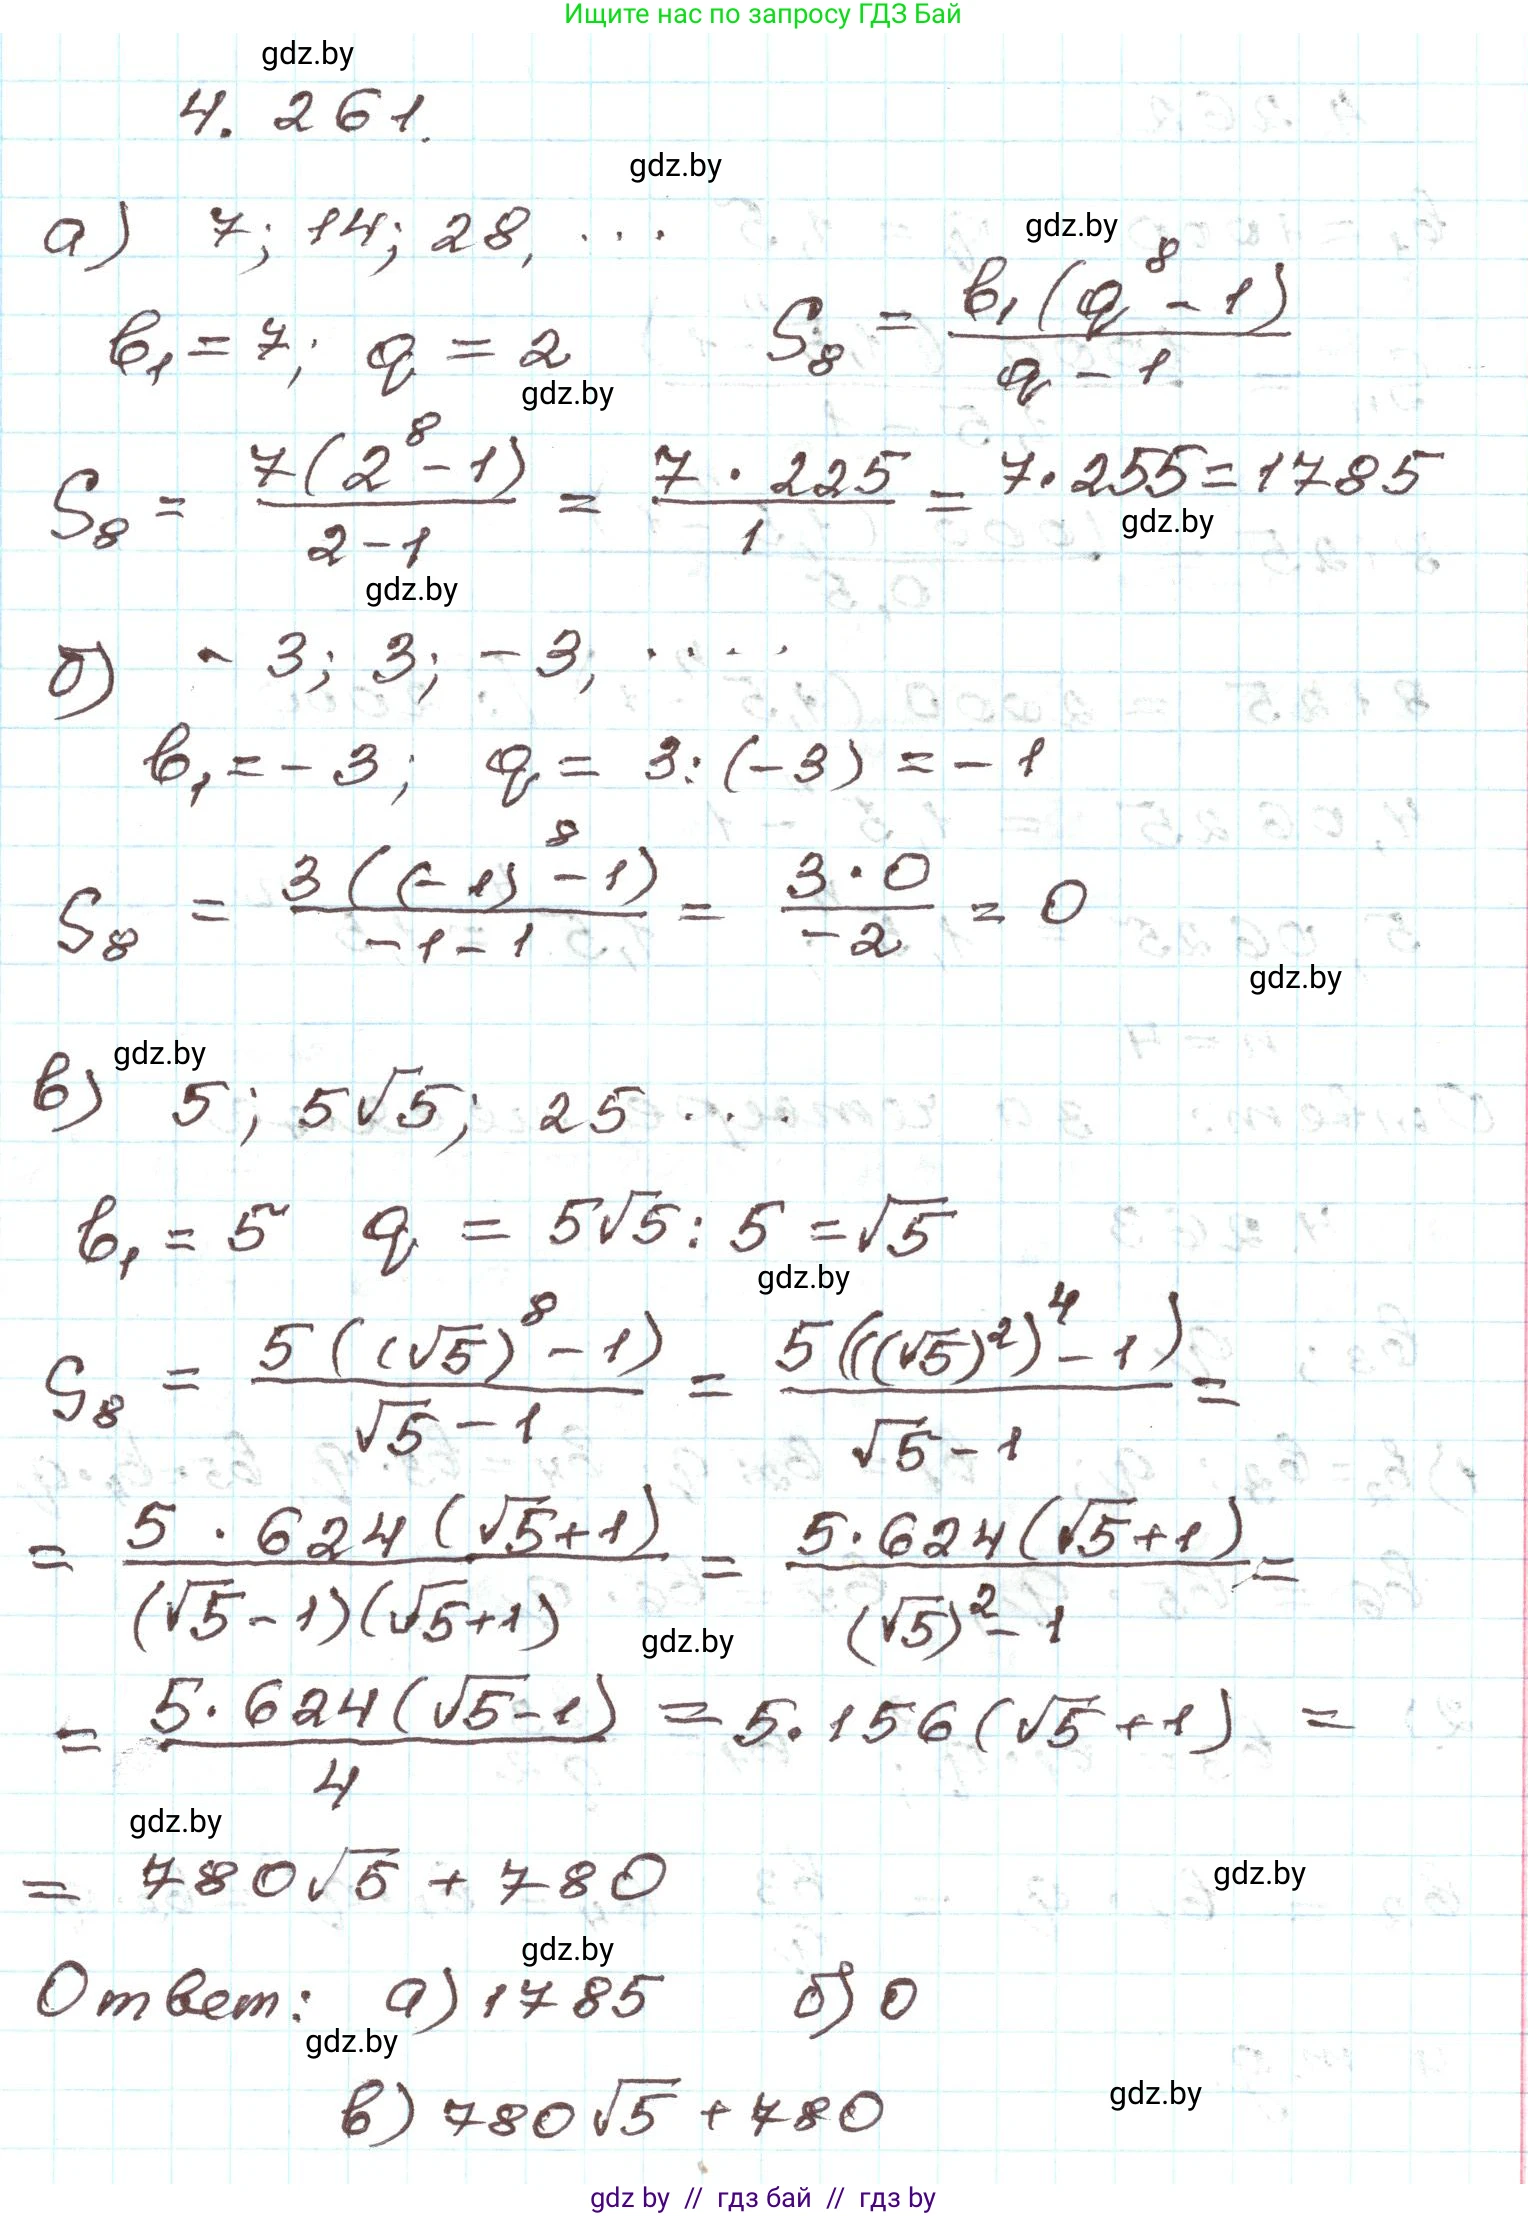 Ищите нас по запросу ГДЗ Бай
gdz.by
4.261.
gdz.by
а) 7; 14; 28, ...
gdz.by
b₁ = 7; q = 2     S₈ = b₁(q⁸ - 1) / q - 1
gdz.by
S₈ = 7(2⁸ - 1) / 2 - 1 = 7 · 225 / 1 = 7 · 255 = 1785
gdz.by
gdz.by
б) - 3; 3; - 3; ....
b₁ = - 3; q = 3 : (-3) = - 1
S₈ = 3((-1)⁸ - 1) / -1 - 1 = 3 · 0 / -2 = 0
gdz.by
gdz.by
в) 5; 5√5; 25 ...
b₁ = 5 q = 5√5 : 5 = √5
gdz.by
S₈ = 5((√5)⁸ - 1) / √5 - 1 = 5(((√5)²)⁴ - 1) / √5 - 1 =
= 5 · 624(√5+1) / (√5 - 1)(√5+1) = 5·624(√5+1) / (√5)² - 1 =
gdz.by
= 5·624(√5-1) / 4 = 5·156(√5 + 1) =
gdz.by
= 780√5 + 780
gdz.by
gdz.by
Ответ: а) 1785 б) 0
gdz.by
в) 780√5 + 780
gdz.by
gdz by // гдз бай // гдз by